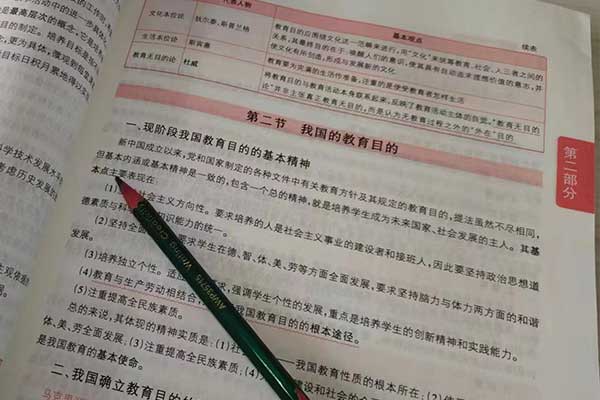 代表人物
基本观点
续表
文化本位论
狄尔泰、斯普兰格
教育目的应围绕文化这一范畴来进行,用“文化”来统筹教育、社会、人三者之间的
关系,其最终目的在于:唤醒人们的意识,使其具有自动追求理想价值的意志,并
使文化有所创造,形成与发展新的文化
生活本位论
斯宾塞
教育要为完满的生活作准备,注重的是使受教育者怎样生活
教育无目的论
杜威
将教育目的与教育活动本身联系起来,反映了教育活动主体的自觉。“教育无目的
论”并非主张真正教育无目的,而是认为无教育过程之外的“外在”目的
第二节 我国的教育目的
第二部分
一、现阶段我国教育目的的基本精神
新中国成立以来,党和国家制定的各种文件中有关教育方针及其规定的教育目的,提法虽然不尽相同,
但基本内涵或基本精神是一致的,包含一个总的精神,就是培养学生成为未来国家、社会发展的主人。其基
本点主要表现在:
(1)社会主义方向性。要求培养的人是社会主义事业的建设者和接班人,因此要坚持政治思想道
德素质与科识能力的统一。
(2)坚持全要求学生在德、智、体、美、劳等方面全面发展,要求坚持脑力与体力两方面的和谐
发展。
(3)培养独立个性。适强调学生个性的发展,重点是培养学生的创新精神和实践能力。
(4)教育与生产劳动相结合,我国教育目的的根本途径。
(5)注重提高全民族素质。
总的来说,其体现的精神实质是:(1)社——我国教育性质的根本所在;(2)
体、美、劳全面发展;(3)注重提高全民族素质;(4)建设和社会的
是我国教育的基本使命。
二、我国确立教育目的的
科学技术发展水平
考虑历史发展的
是最高层次的概念
目标日积月累地得以实